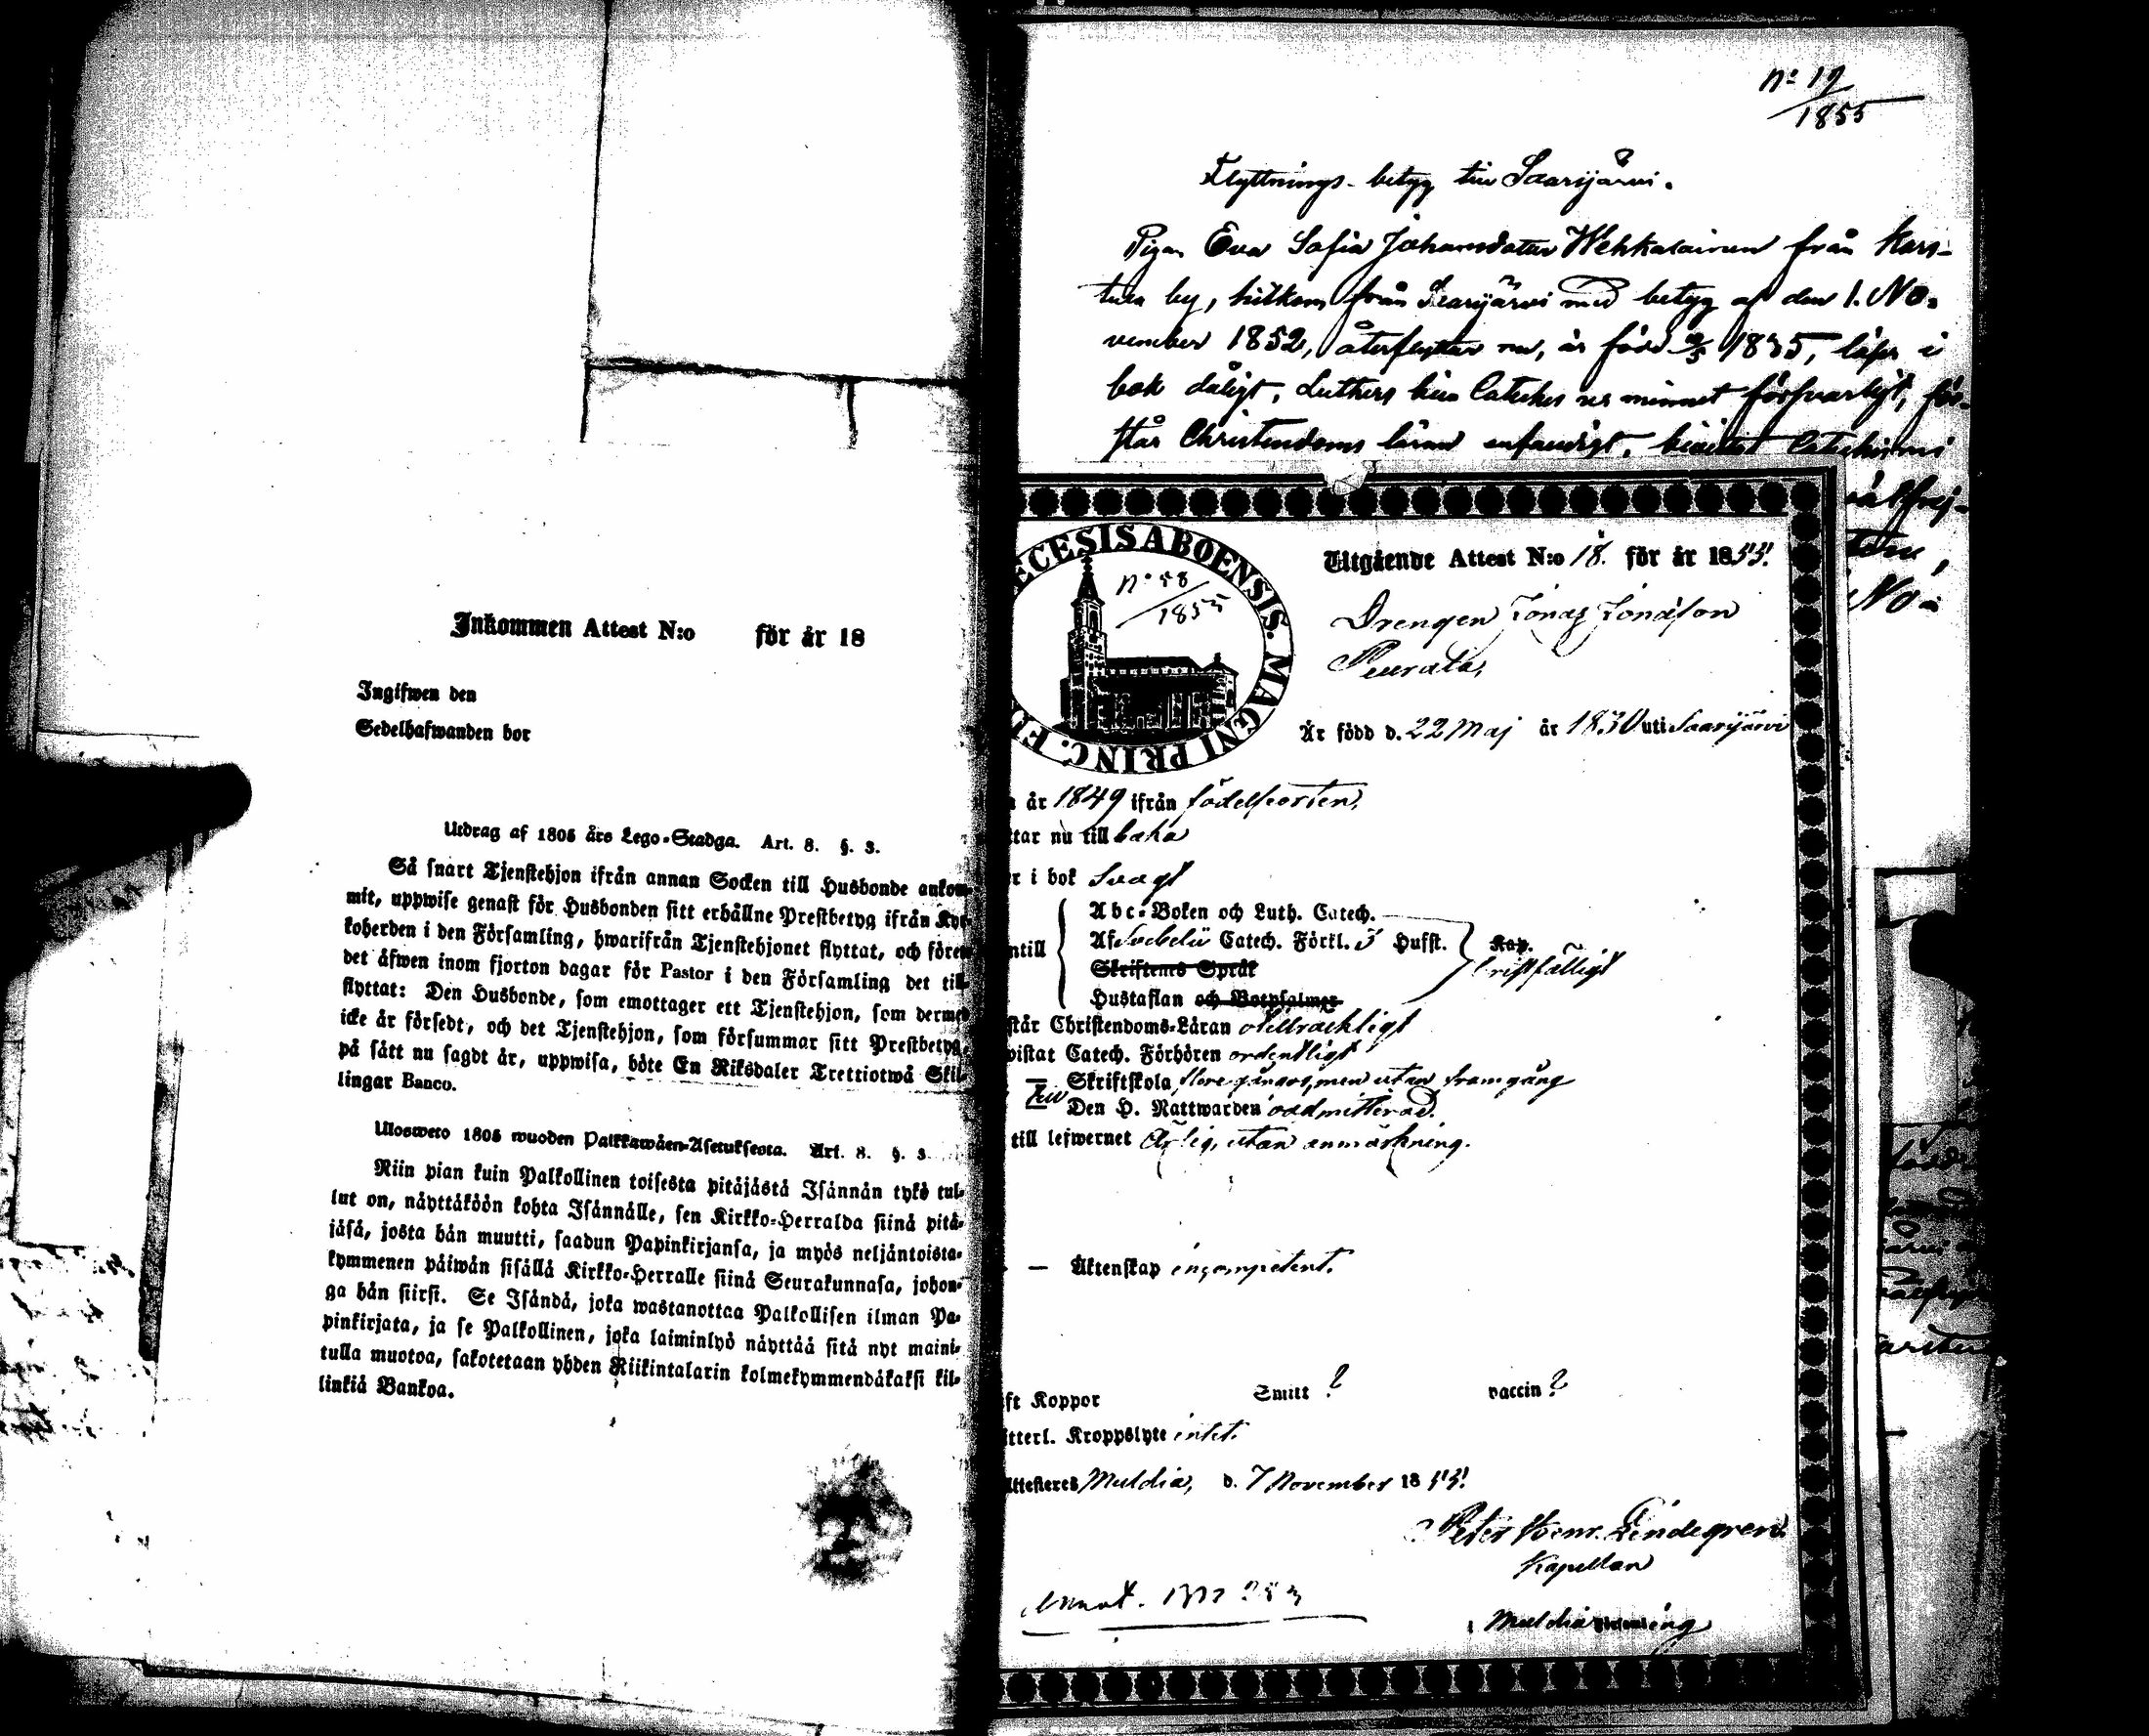 Inkommen Attest N:o för år 18
Ingifwen den
Sedelhafwanden bor
Utdrag af 1805 års Lego-Stadga. Art. 8. §. 3.
Så snart Tjenstehjon ifrån annan Socken till Husbonde ankom-
mit, uppwise genast för Husbonden sitt erhållne Prestbetyg ifrån Kyr-
koherden i den Församling, hwarifrån Tjenstehjonet flyttat, och förete
det äfwen inom fjorton dagar för Pastor i den Församling det till-
flyttat: Den Husbonde, som emottager ett Tjenstehjon, som dermed
icke är försedt, och det Tjenstehjon, som försummar sitt Prestbetyg,
på sätt nu sagdt är, uppwisa, böte En Riksdaler Trettiotwå Skil-
lingar Banco.
Ulosweto 1805 wuoden Palkkawäen-Asetuksesta. Art. 8. §. 3.
Niin pian kuin Palkollinen toisesta pitäjästä Isännän tykö tul-
lut on, näyttäköön kohta Isännälle, sen Kirkko-Herralda siinä pitä-
jäsä, josta hän muutti, saadun Papinkirjansa, ja myös neljäntoista-
kymmenen päiwän sisällä Kirkko-Herralle siinä Seurakunnasa, johon-
ga hän siirsi. Se Isändä, joka wastanottaa Palkollisen ilman Pa-
pinkirjata, ja se Palkollinen, joka laiminlyö näyttää sitä nyt maini-
tulla muotoa, sakotetaan yhden Riikintalarin kolmekymmendäkaksi kil-
linkiä Bankoa.
No 19
1855
Flyttnings-betyg till Saarijärvi.
Pigan Eva Sofia Johansdotter från Kars-
tula by, hitkom från Saarijärvi med betyg af den 1. No-
vember 1852, återflyttar nu, är född 1835, läser i
bok dåligt, Luthers Cateches ur minnet försvarligt, för-
står Christendoms läran enfaldigt, Catechismi
No-
ECESIS ABOENSIS. MAGNI PRINC. FI
No 58
1855
Utgående Attest N:o 18. för år 1855.
Drengen Jonas Jonasson
Peurala,
Är född d. 22 Maj år 1830 uti Saarijärvi
år 1849 ifrån födelseorten,
ttar nu till baka
r i bok svagt
ntill
Abc-Boken och Luth. Catech.
Af Svebelii Catech. Förkl. 3 Hufst. Kap.
Skriftenes Språk
Hustaflan och Botpsalmer
bristfälligt
står Christendoms-Läran otillräckligt
wistat Catech. Förhören ordentligt
— Skriftskola flere gånger, men utan framgång
Den H. Nattwarden oadmitterad.
till lefwernet ärlig, utan anmärkning.
— Äktenskap incompetent.
ft Koppor Smitt ? vaccin ?
tterl. Kroppslyte intet.
Attesteres Muldia, d. 7 November 1855.
Peter Henr. Lindegren
Kapellan
Muldia